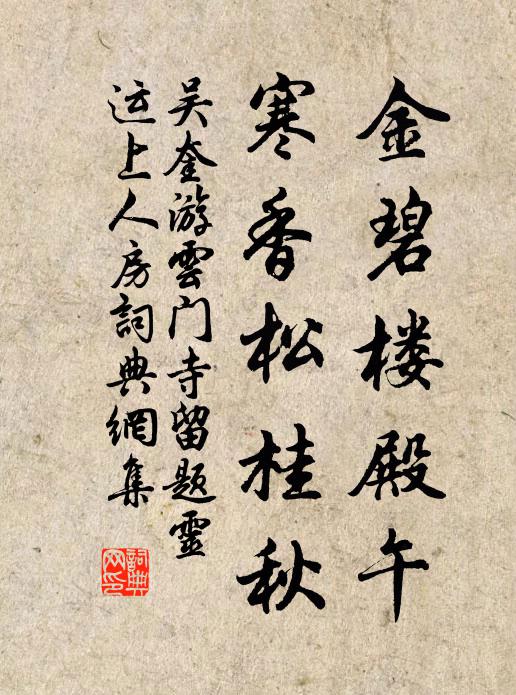 金碧楼殿午
寒香松桂秋
吴奎游雲门寺留题靈
运上人房詞典網集
詞典网印